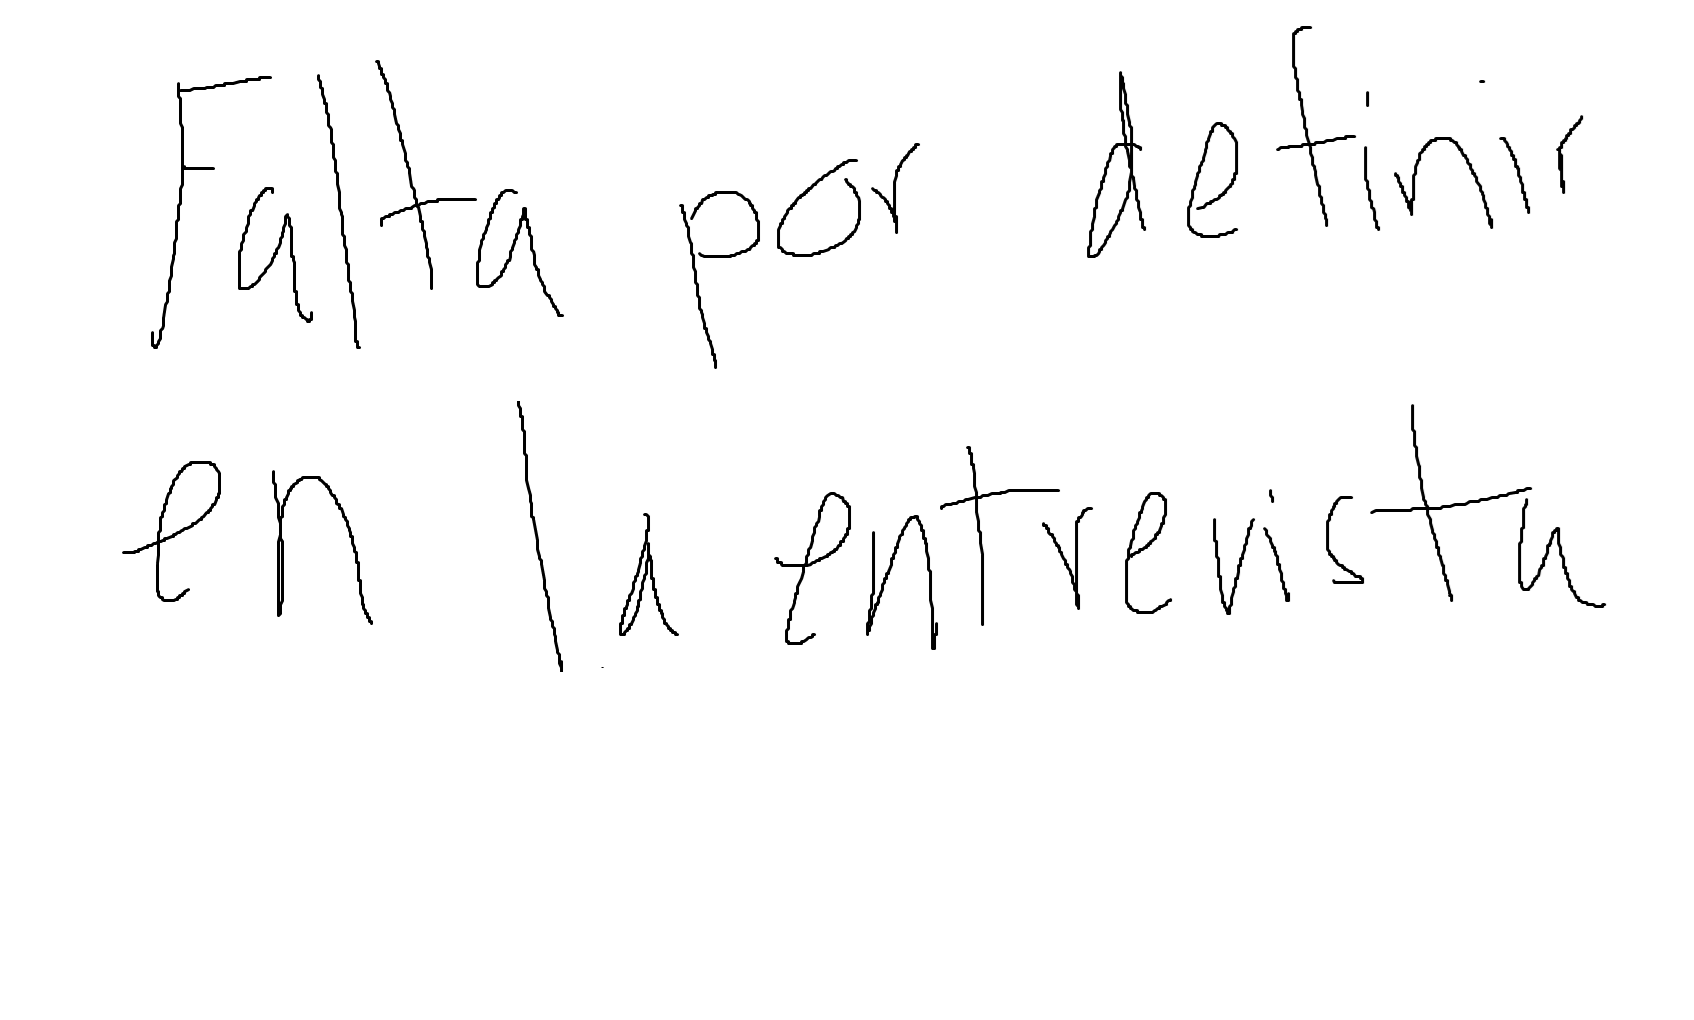 Falta por definir
en la entrevista